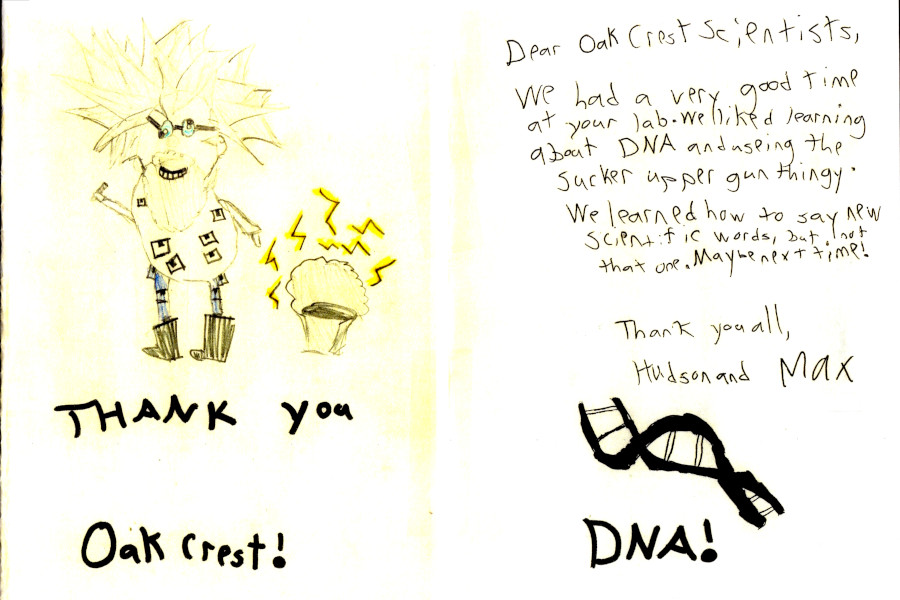 THANK you
Oak Crest!
Dear Oak Crest Scientists,
We had a very good time
at your lab. We liked learning
about DNA and useing the
sucker upper gun thingy.
We learned how to say new
scientific words, but not
that one. Maybe next time!
Thank you all,
Hudson and Max
DNA!